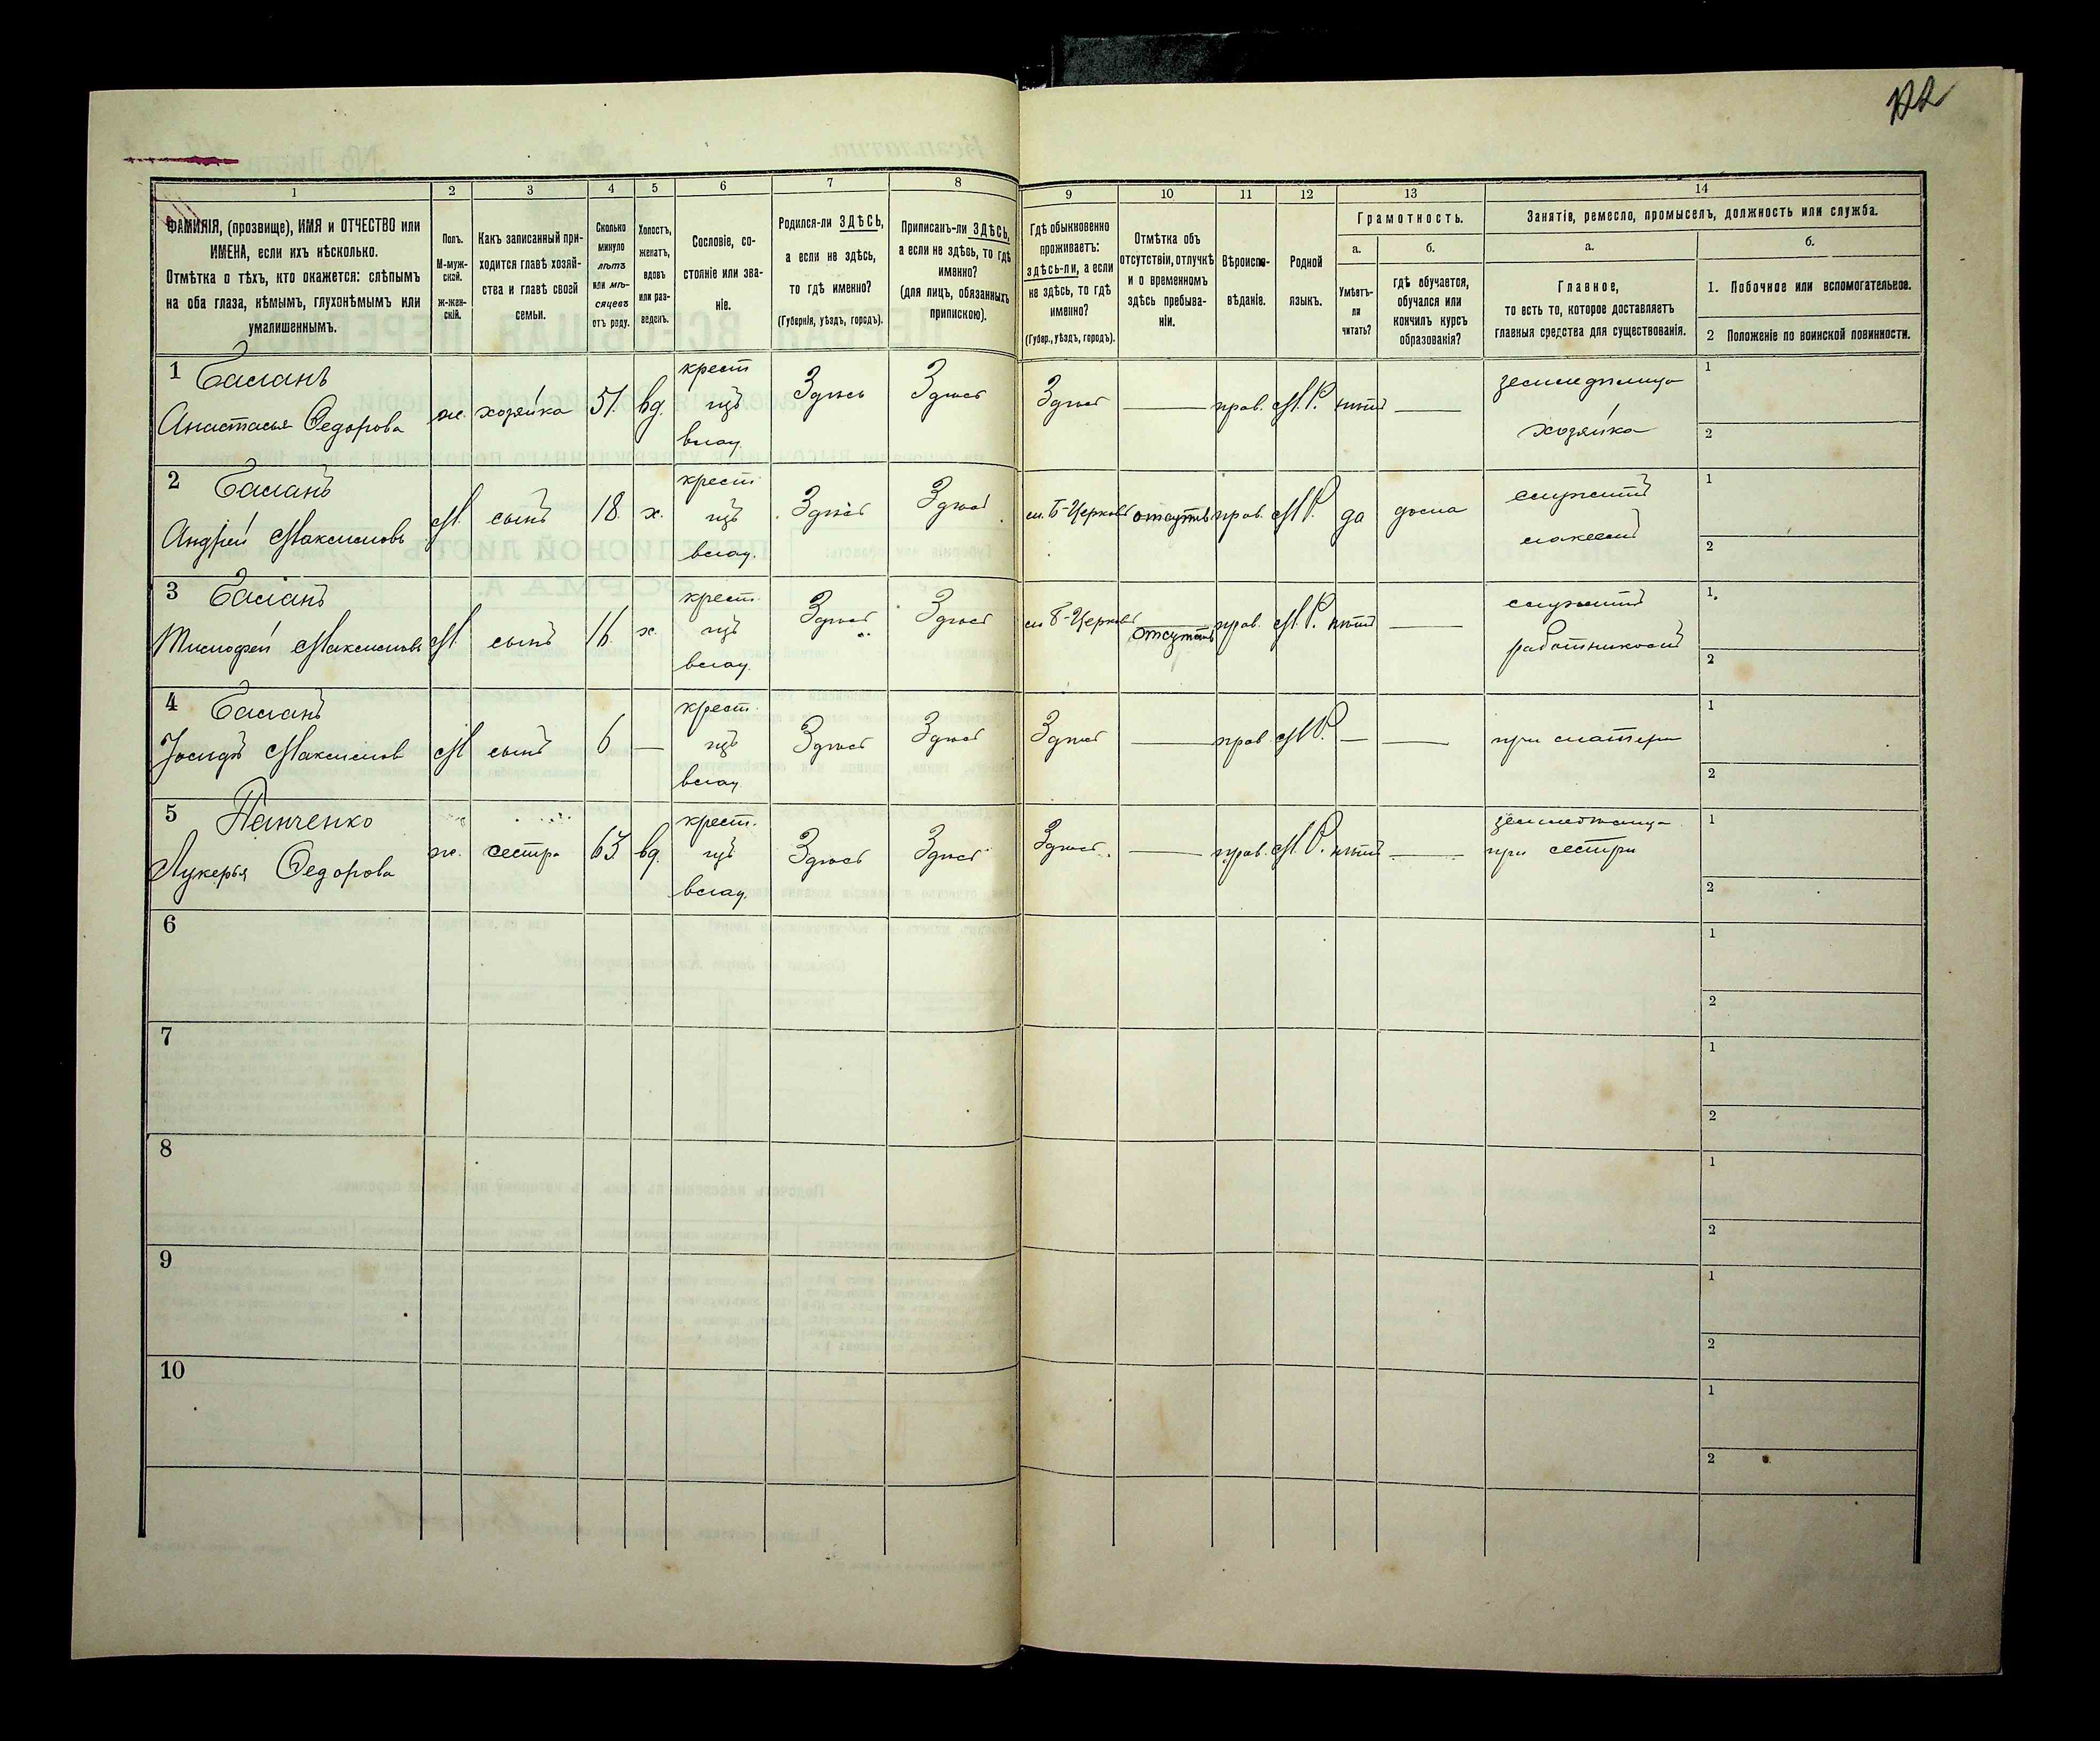 122
1
2
3
4
5
6
7
8
9
10
11
12
13
14
ФАМИЛІЯ, (прозвище), ИМЯ и ОТЧЕСТВО или
ИМЕНА, если ихъ нѣсколько.
Отмѣтка о тѣхъ, кто окажется: слѣпымъ
на оба глаза, нѣмымъ, глухонѣмымъ или
умалишеннымъ.
Полъ.
М-муж-
ской.
ж-жен-
скій.
Какъ записанный при-
ходится главѣ хозяй-
ства и главѣ своей
семьи.
Сколько
минуло
лѣтъ
или мѣ-
сяцевъ
отъ роду.
Холостъ,
женатъ,
вдовъ
или раз-
веденъ.
Сословіе, со-
стояніе или зва-
ніе.
Родился-ли ЗДѢСЬ,
а если не здѣсь,
то гдѣ именно?
(Губернія, уѣздъ, городъ).
Приписанъ-ли ЗДѢСЬ,
а если не здѣсь, то гдѣ
именно?
(для лицъ, обязанныхъ
припискою).
Гдѣ обыкновенно
проживаетъ:
здѣсь-ли, а если
не здѣсь, то гдѣ
именно?
(Губер., уѣздъ, городъ).
Отмѣтка объ
отсутствіи, отлучкѣ
и о временномъ
здѣсь пребыва-
ніи.
Вѣроиспо-
вѣданіе.
Родной
языкъ.
Грамотность.
а.
Умѣетъ-
ли
читать?
б.
гдѣ обучается,
обучался или
кончилъ курсъ
образованія?
Занятія, ремесло, промыселъ, должность или служба.
а.
Главное,
то есть то, которое доставляетъ
главныя средства для существованія.
б.
1. Побочное или вспомогательное.
2 Положеніе по воинской повинности.
1 Баланъ
Анастасья Федорова
ж. хозяйка 51. вд.
крест
изъ
влад.
Здѣсь Здѣсь Здѣсь — прав. М.Р. нѣтъ —
земледѣлица
хозяйка
1
2
2 Баланъ
Андрей Максимовъ
М. сынъ 18. х.
крест
изъ
влад.
Здѣсь Здѣсь м. Б-Церковь отсутв прав. М.Р. да дома
служитъ
лакеемъ
1
2
3 Баланъ
Тимофей Максимовъ
М сынъ 16. х.
крест.
изъ
влад.
Здѣсь Здѣсь м Б-Церковь отсутв прав. М.Р. нѣтъ —
служитъ
работникомъ
1.
2
4 Баланъ
Іосифъ Максимов
М сынъ 6 —
крест.
изъ
влад
Здѣсь Здѣсь Здѣсь — прав. М.Р. — —
при матери
1
2
5 Панченко
Лукерья Федорова
ж. сестра 63 вд.
крест.
изъ
влад.
Здѣсь Здѣсь Здѣсь — прав. М.Р. нѣтъ —
при сестри
1
2
6
1
2
7
1
2
8
1
2
9
1
2
10
1
2